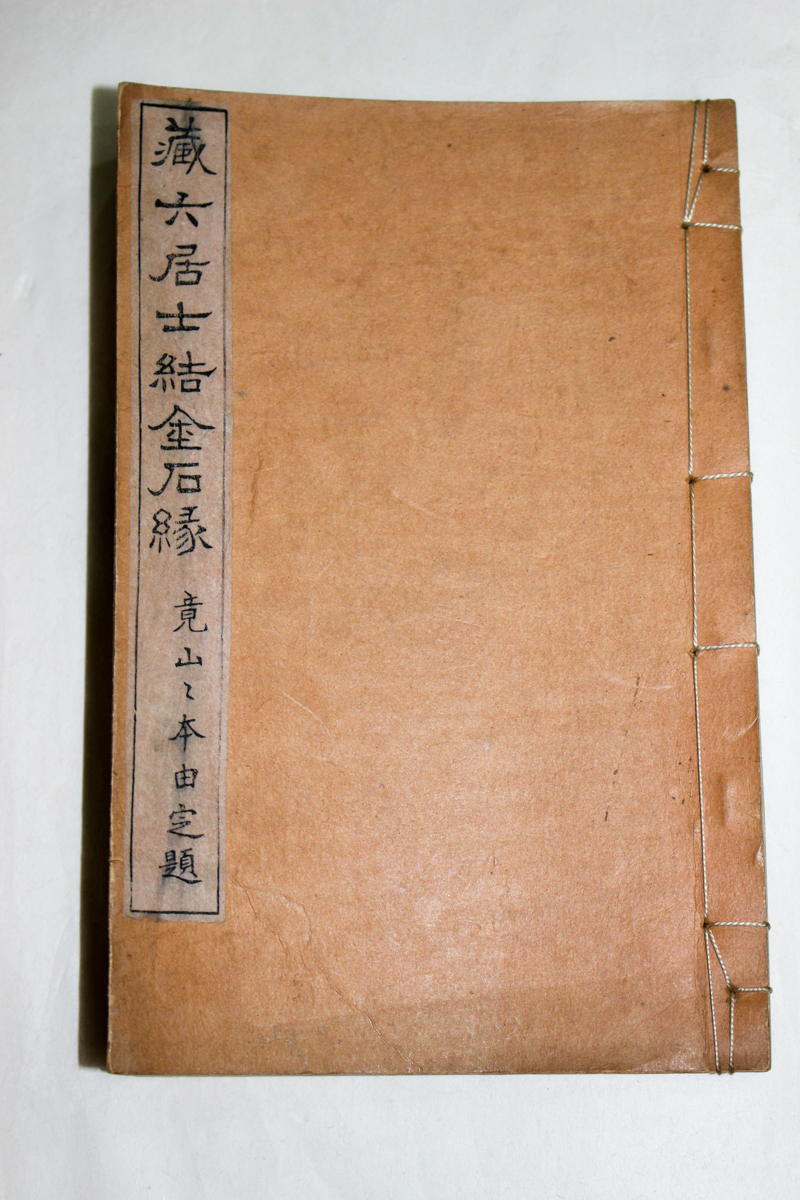 藏六居士結金石縁
竟山〻本由定題